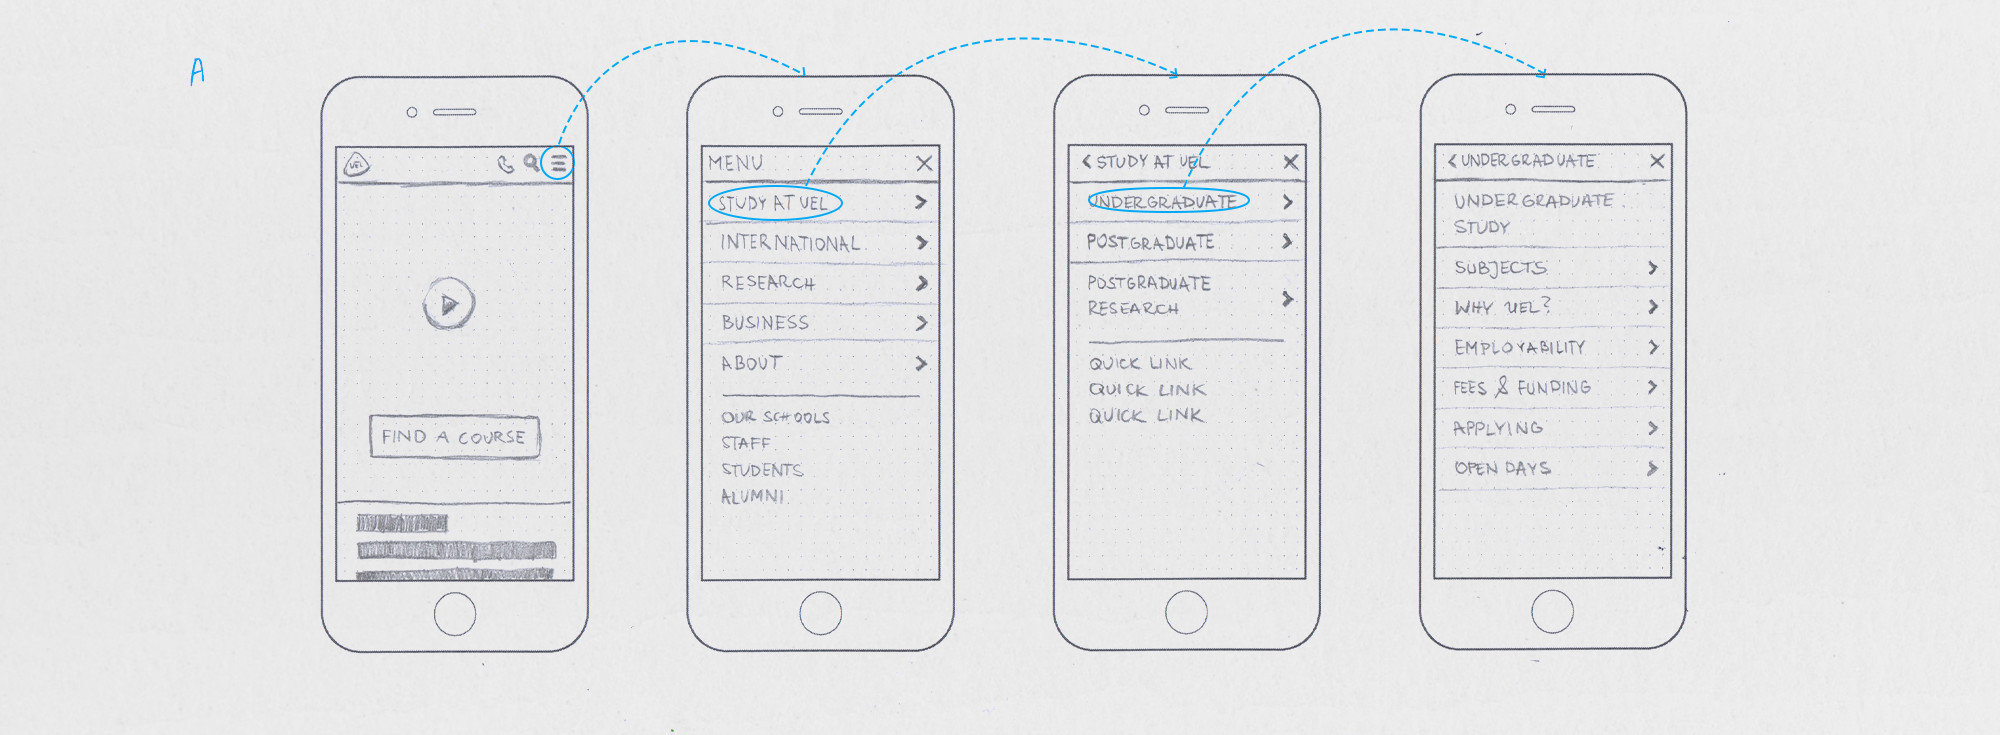 A
UEL
FIND A COURSE
MENU
STUDY AT UEL
INTERNATIONAL
RESEARCH
BUSINESS
ABOUT
OUR SCHOOLS
STAFF
STUDENTS
ALUMNI
STUDY AT UEL
UNDERGRADUATE
POSTGRADUATE
POSTGRADUATE
RESEARCH
QUICK LINK
QUICK LINK
QUICK LINK
UNDERGRADUATE
UNDERGRADUATE
STUDY
SUBJECTS
WHY UEL?
EMPLOYABILITY
FEES & FUNDING
APPLYING
OPEN DAYS